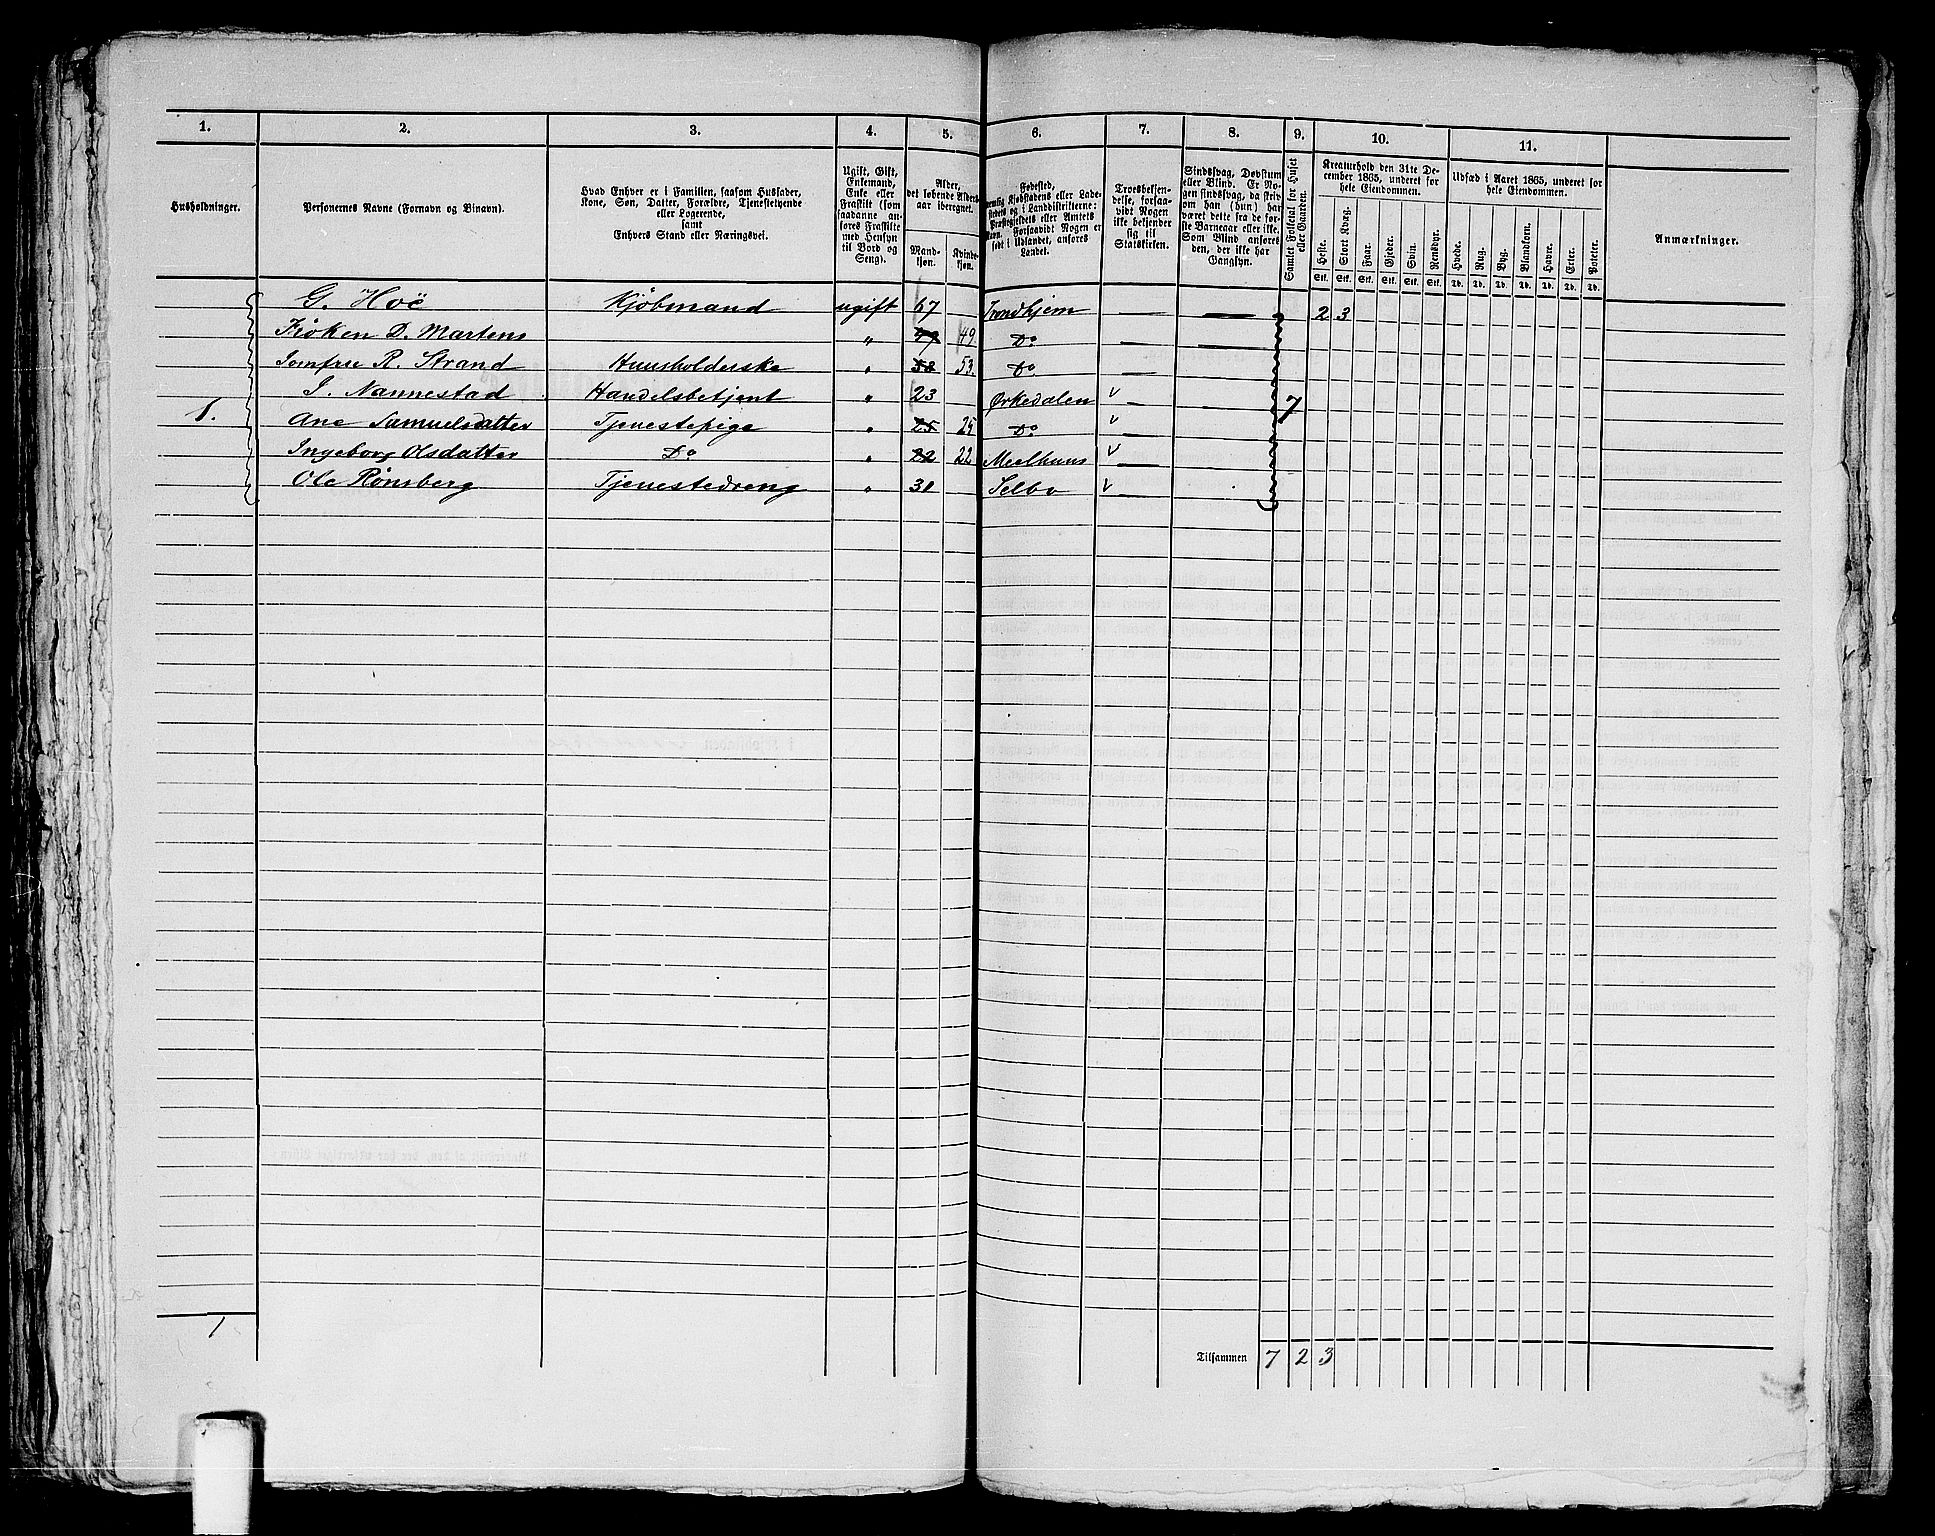 1. 2. 3. 4. 5. 6. 7. 8. 9. 10. 11.
Husholdninger.
Personernes Navne (Fornavn og Binavn).
Hvad Enhver er i Familien, saasom Husfader,
Kone, Søn, Datter, Forældre, Tjenestetyende
eller Logerende,
samt
Enhvers Stand eller Næringsvei.
Ugift, Gift,
Enkemand,
Enke eller
Fraskilte (som
saadanne an-
føres Fraskilte
med Hensyn
til Bord og
Seng).
Alder,
det løbende Alders-
aar iberegnet.
Mand-
kjøn.
Kvinde-
kjøn.
Fødested,
Kjøbstadens eller Lade-
stedets og i Landdistrikterne:
Præstegjeldets eller Amtets
Navn. Forsaavidt Nogen er
født i Udlandet, anføres
Landet.
Troesbekjen-
delse, forsaa-
vidt Nogen
ikke bekjender
sig til
Statskirken.
Sindssvag, Døvstum
eller Blind. Er No-
gen sindssvag, da skriv
om han (hun) har
været dette fra de før-
ste Barneaar eller ikke.
Som Blind anføres
den, der ikke har
Gangsyn.
Samlet Folketal for Huset
eller Gaarden.
Kreaturhold den 31te De-
cember 1865, underet for
hele Eiendommen.
Heste. Stort Kvæg. Faar. Gjeder. Svin. Rensdyr.
Stk. Stk. Stk. Stk. Stk. Stk.
Udsæd i Aaret 1865, underet for
hele Eiendommen.
Hvede. Rug. Byg. Blandkorn. Havre. Erter. Poteter.
Td. Td. Td. Td. Td. Td. Td.
Anmærkninger.
G. Hoë Kjøbmand ugift 67 Trondhjem — — 2 3
Frøken D. Martens " 49 49 Do — —
Jomfrue R. Strand Huusholderske " 53 53. Do — —
J. Nannestad Handelsbetjent " 23 Ørkedalen — — 7
1. Ane Samuelsdatter Tjenestepige " 25 25 Do — —
Ingeborg Olsdatter Do " 22 22 Meelhuus — —
Ole Rønsberg Tjenestedreng " 31 Selbo —
1
Tilsammen 7 2 3